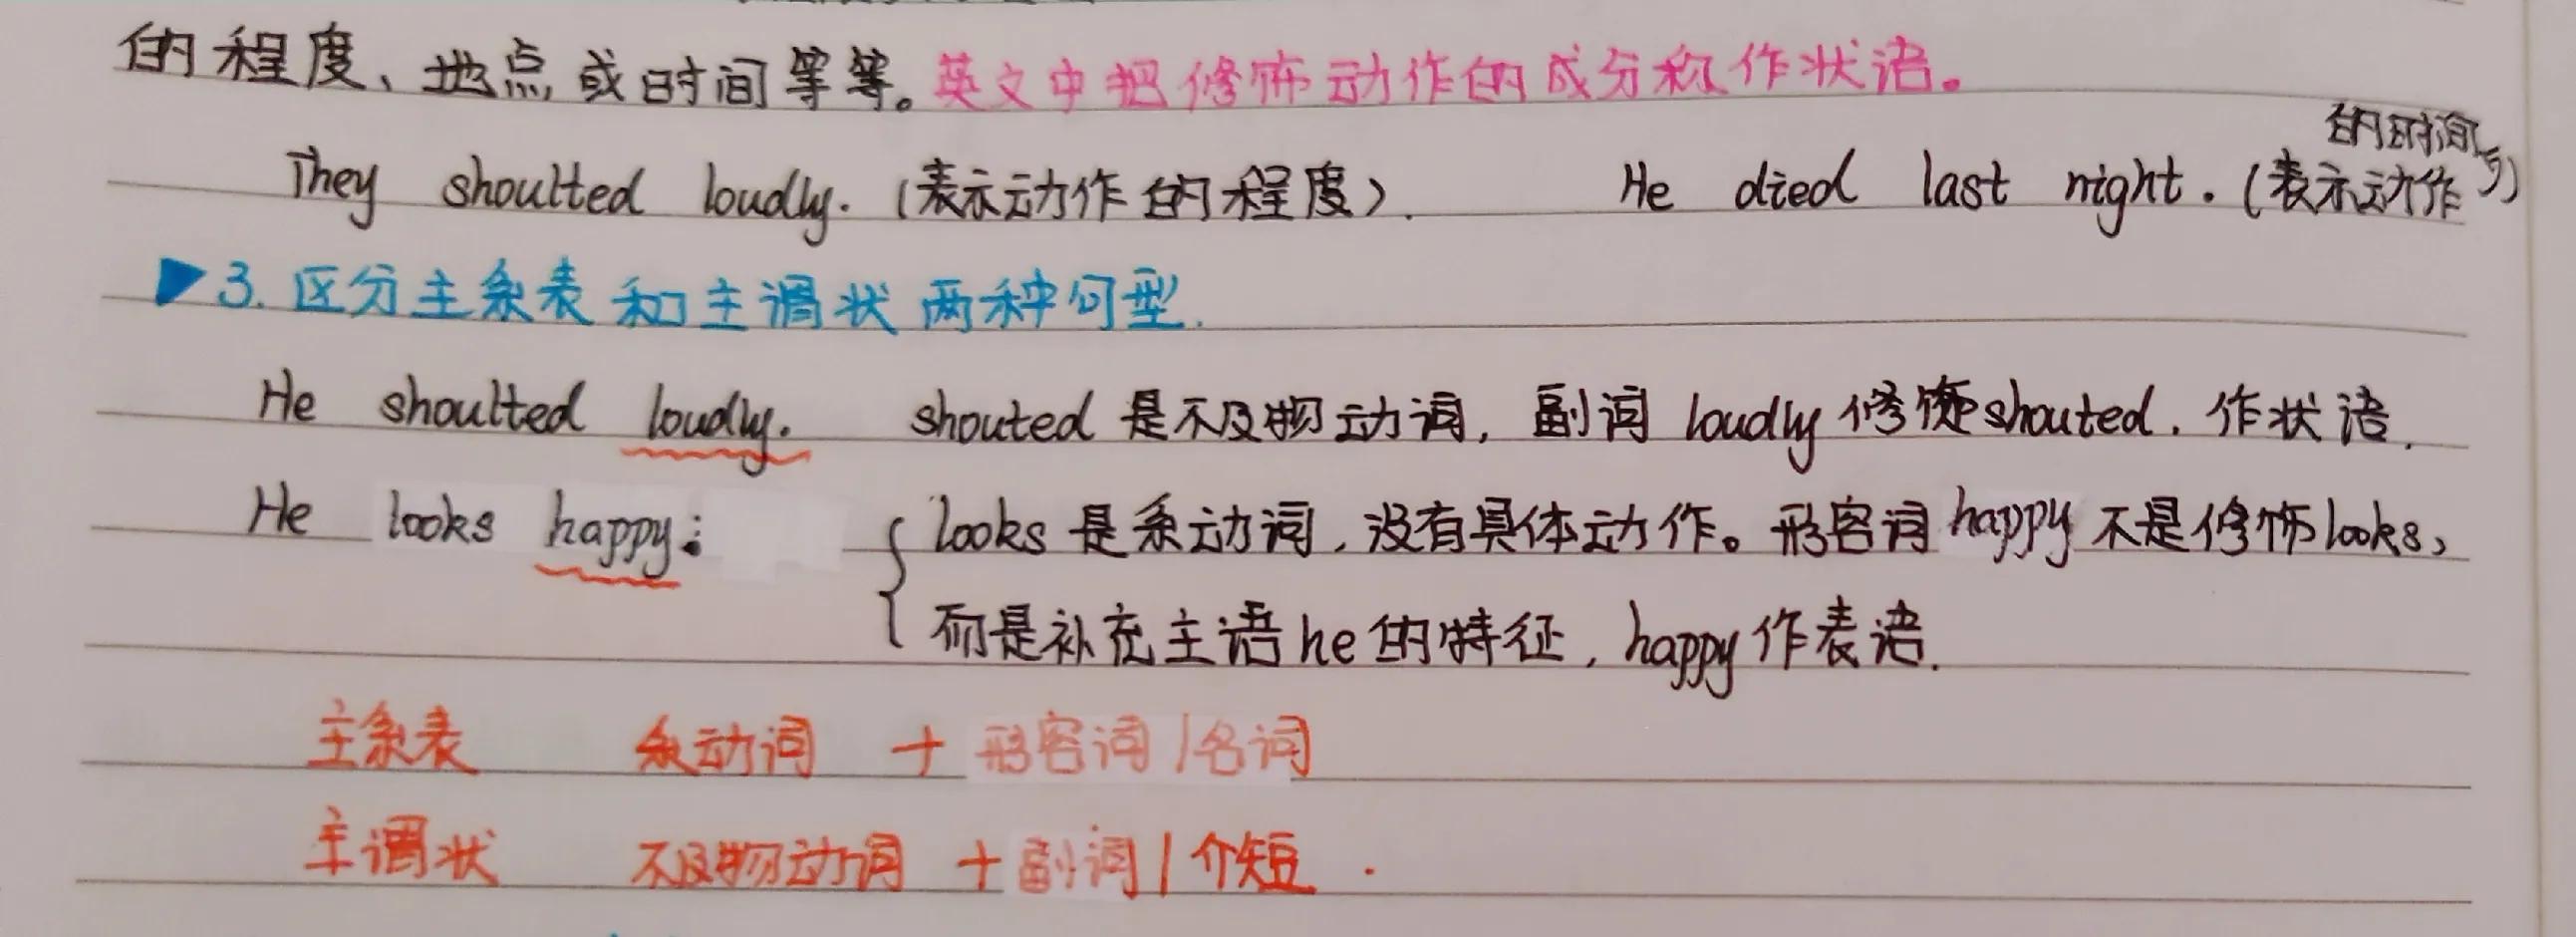 的程度、地点或时间等等。英文中把修饰动作的成分称作状语。
They shoulted loudly. (表示动作的程度). He died last night. (表示动作的时间)
▶3. 区分主系表和主谓状两种句型.
He shoulted loudly. shouted 是不及物动词, 副词 loudly 修饰 shouted. 作状语.
He looks happy: looks 是系动词, 没有具体动作。形容词 happy 不是修饰 looks,
而是补充主语 he 的特征, happy 作表语.
主系表 系动词 + 形容词/名词
主谓状 不及物动词 + 副词/介短.